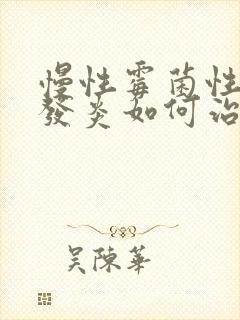 慢性霉菌性
發炎如何治
吴陳華